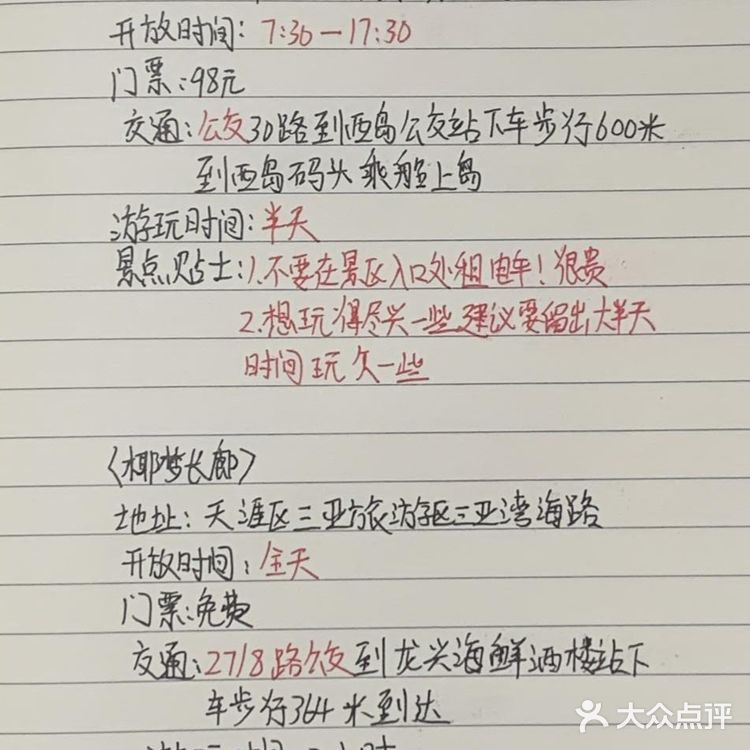 开放时间：7:30—17:30
门票：98元
交通：公交30路到西岛公交站下车步行600米
到西岛码头乘船上岛
游玩时间：半天
景点贴士：1.不要在景区入口处租电车！很贵
2.想玩得尽兴一些建议要留出大半天
时间玩久一些
〈椰梦长廊〉
地址：天涯区三亚旅游区三亚湾海路
开放时间：全天
门票：免费
交通：27/8路公交到龙兴海鲜酒楼站下
车步行364米到达
大众点评